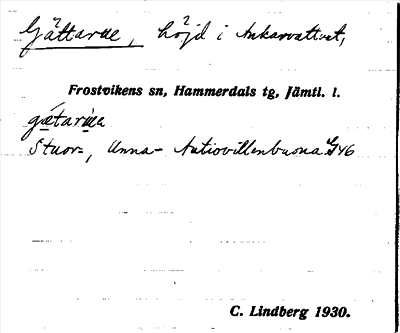 Gättarne, höjd i Ankarvattnet,
Frostvikens sn, Hammerdals tg, Jämtl. l.
gætarna
Stuor-, Unna-
C. Lindberg 1930.